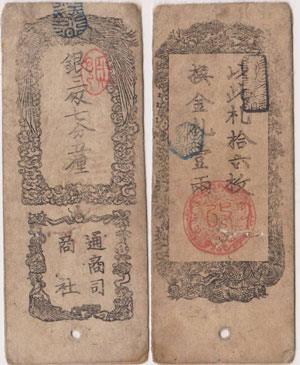 銀三匁七分五釐
通商司
商社
以此札拾六枚
換金札壹兩